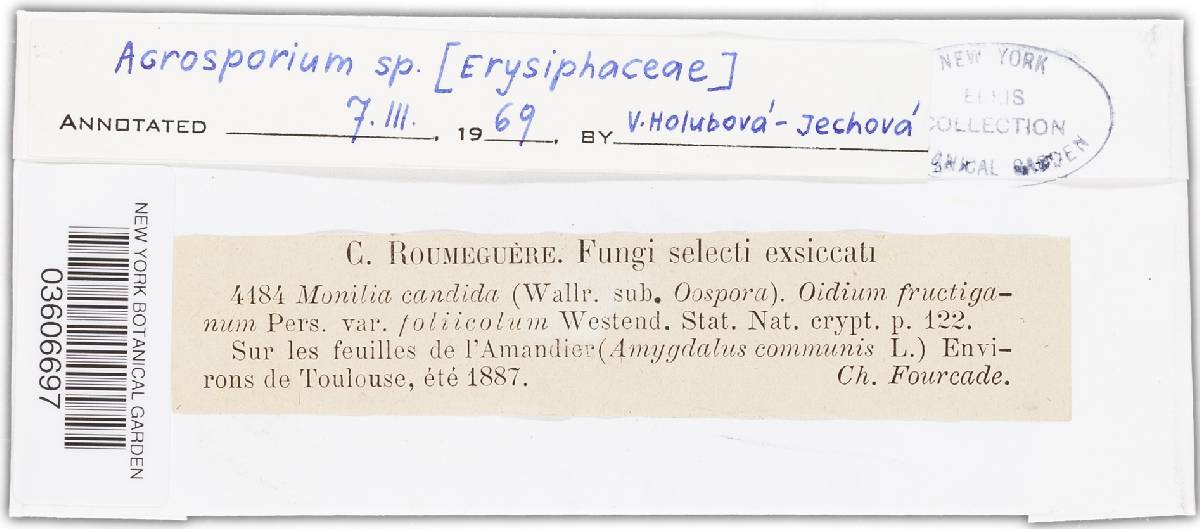 Acrosporium sp. [Erysiphaceae]
ANNOTATED 7.III. , 1969 , BY V. Holubová-Jechová
NEW YORK
ELLIS
COLLECTION
GARDEN
NEW YORK BOTANICAL GARDEN
03606697
C. ROUMEGUÈRE. Fungi selecti exsiccati
4184 Monilia candida (Wallr. sub. Oospora). Oidium fructiga-
num Pers. var. foliicolum Westend. Stat. Nat. crypt. p. 122.
Sur les feuilles de l'Amandier (Amygdalus communis L.) Envi-
rons de Toulouse, été 1887. Ch. Fourcade.